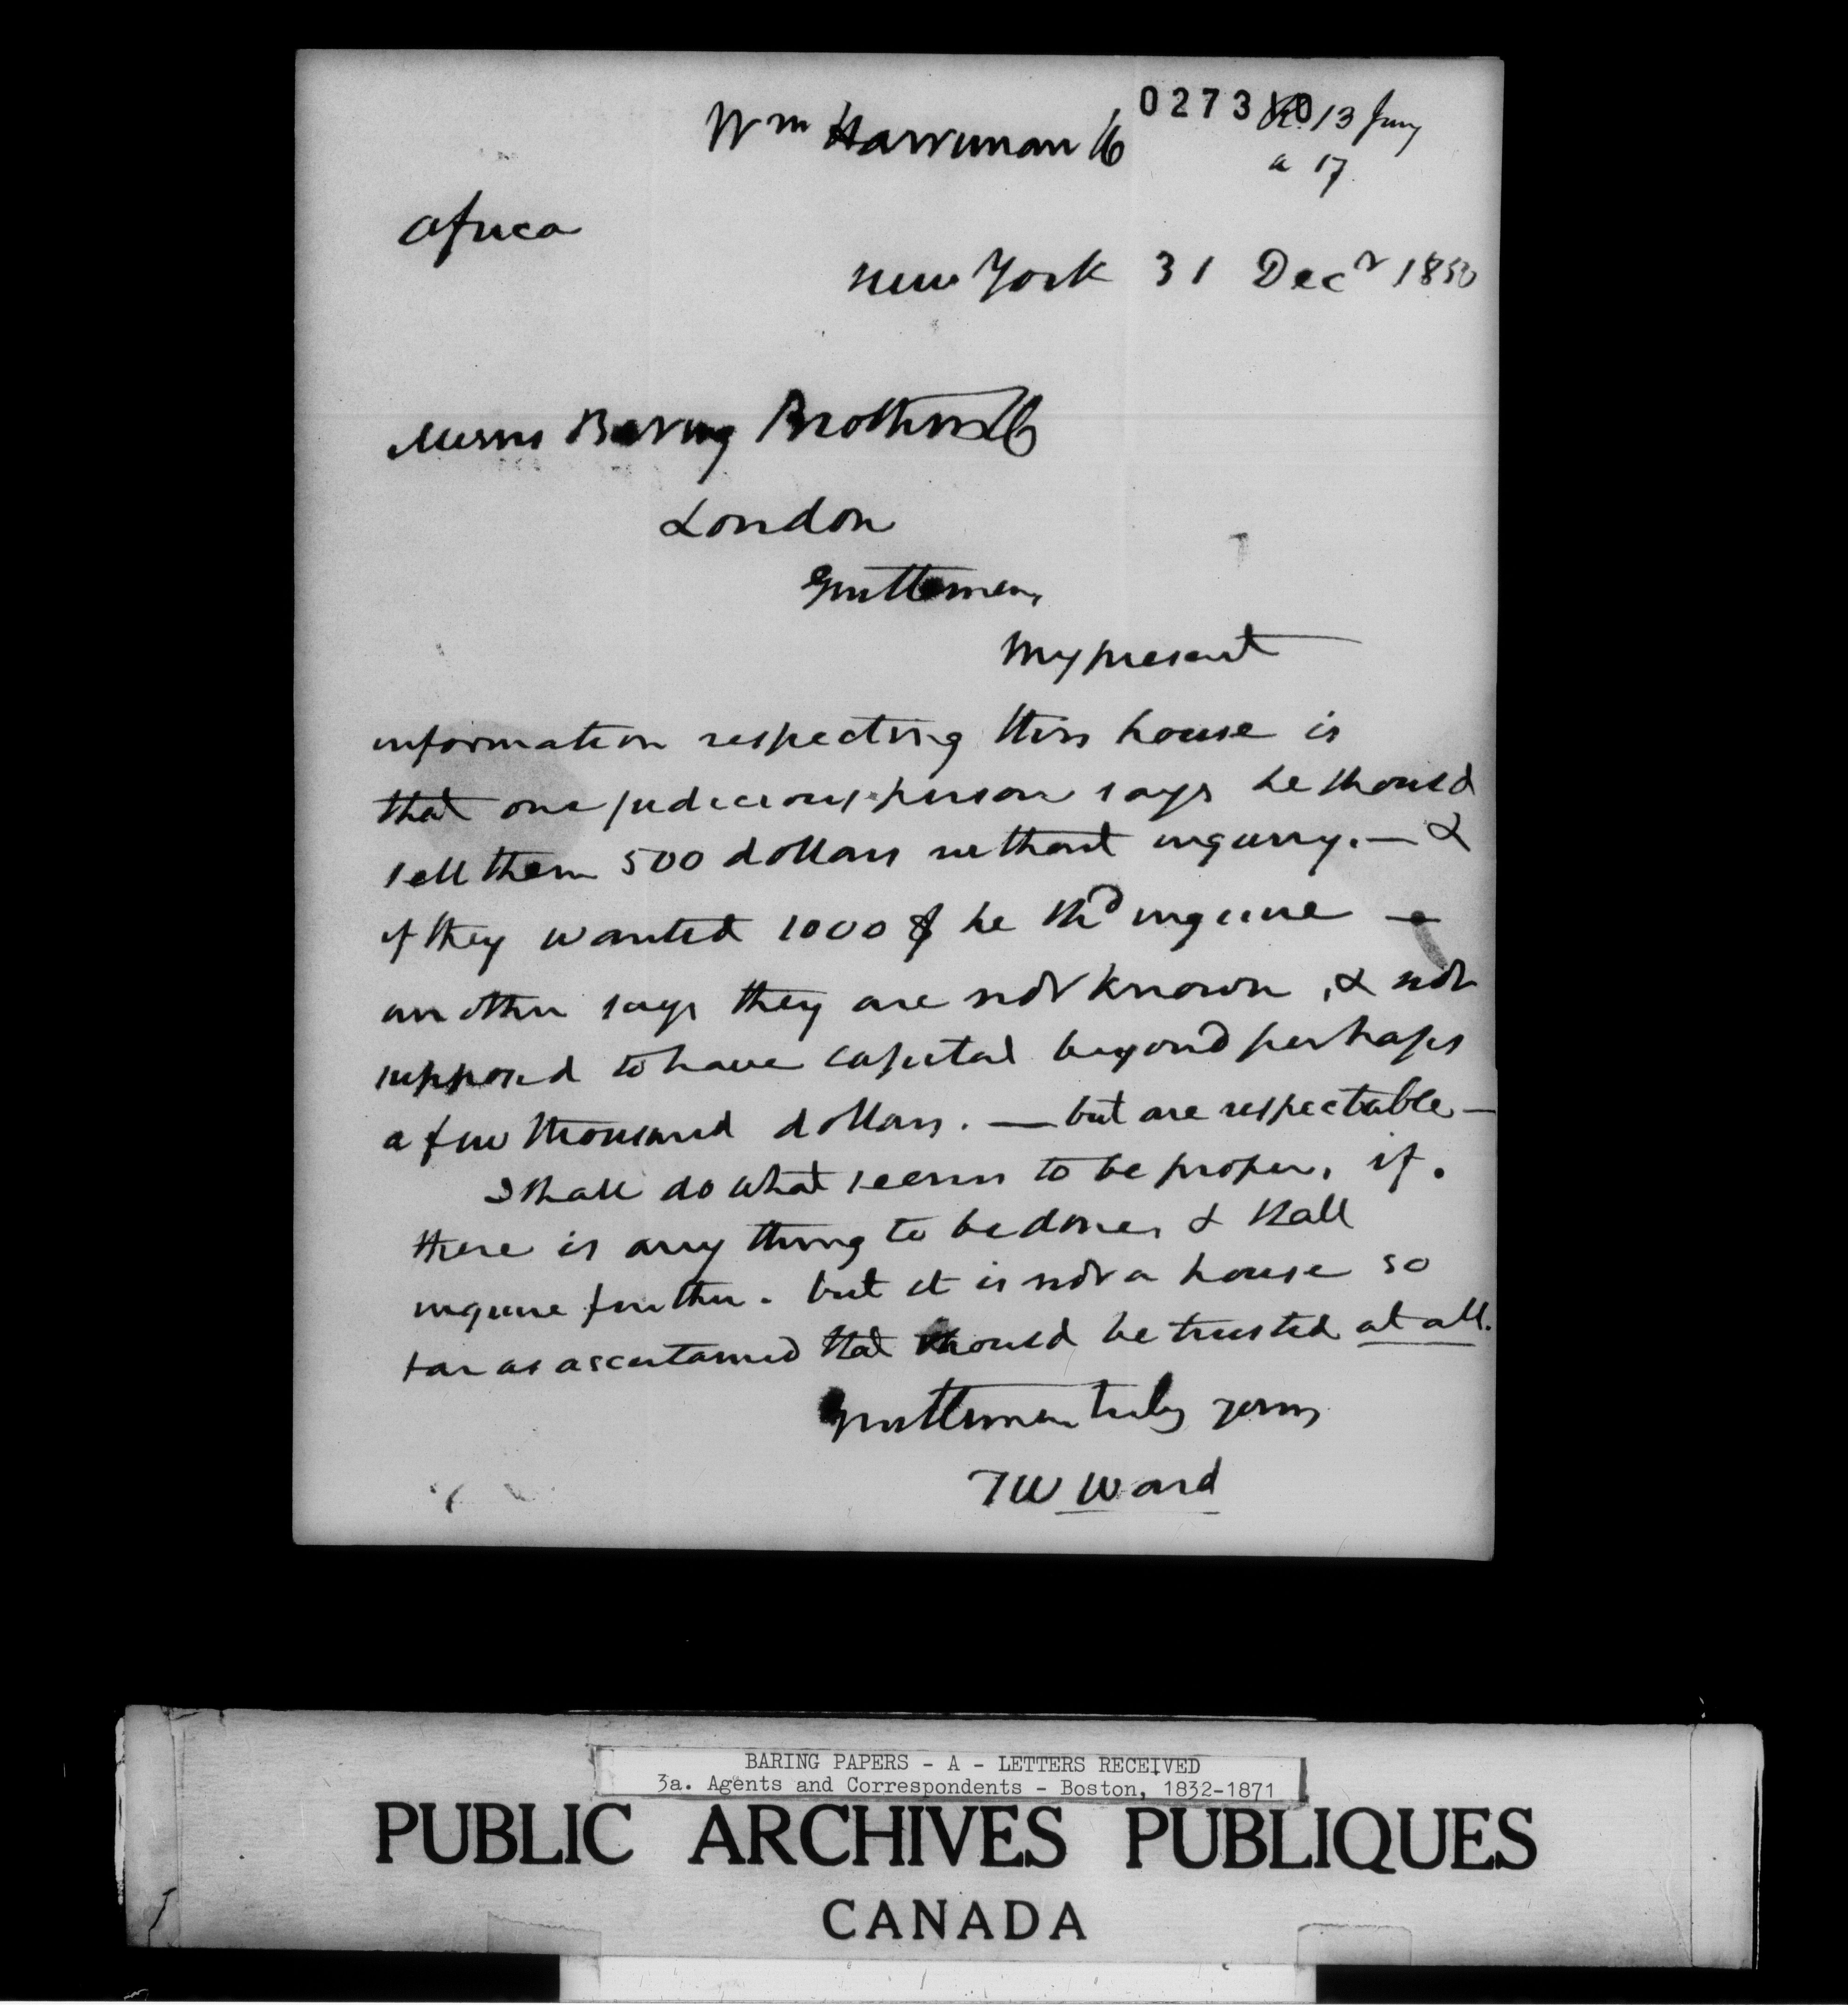 027310
Wm Harriman & Co
R. 13 Jany
a 17
Africa
New York 31 Decr 1850
Messrs Baring Brothers & Co
London
Gentlemen,
My present
information respecting this house is
that one judicious person says he should
sell them 500 dollars without inquiry. — &
if they wanted 1000 $ he shd inquire —
another says they are not known, & not
supposed to have capital beyond perhaps
a few thousand dollars. — but are respectable —
I shall do what seems to be proper, if
there is any thing to be done, & shall
inquire further. but it is not a house so
far as ascertained that should be trusted at all.
Gentlemen truly yours
T W Ward
BARING PAPERS - A - LETTERS RECEIVED
3a. Agents and Correspondents - Boston, 1832-1871
PUBLIC ARCHIVES PUBLIQUES
CANADA